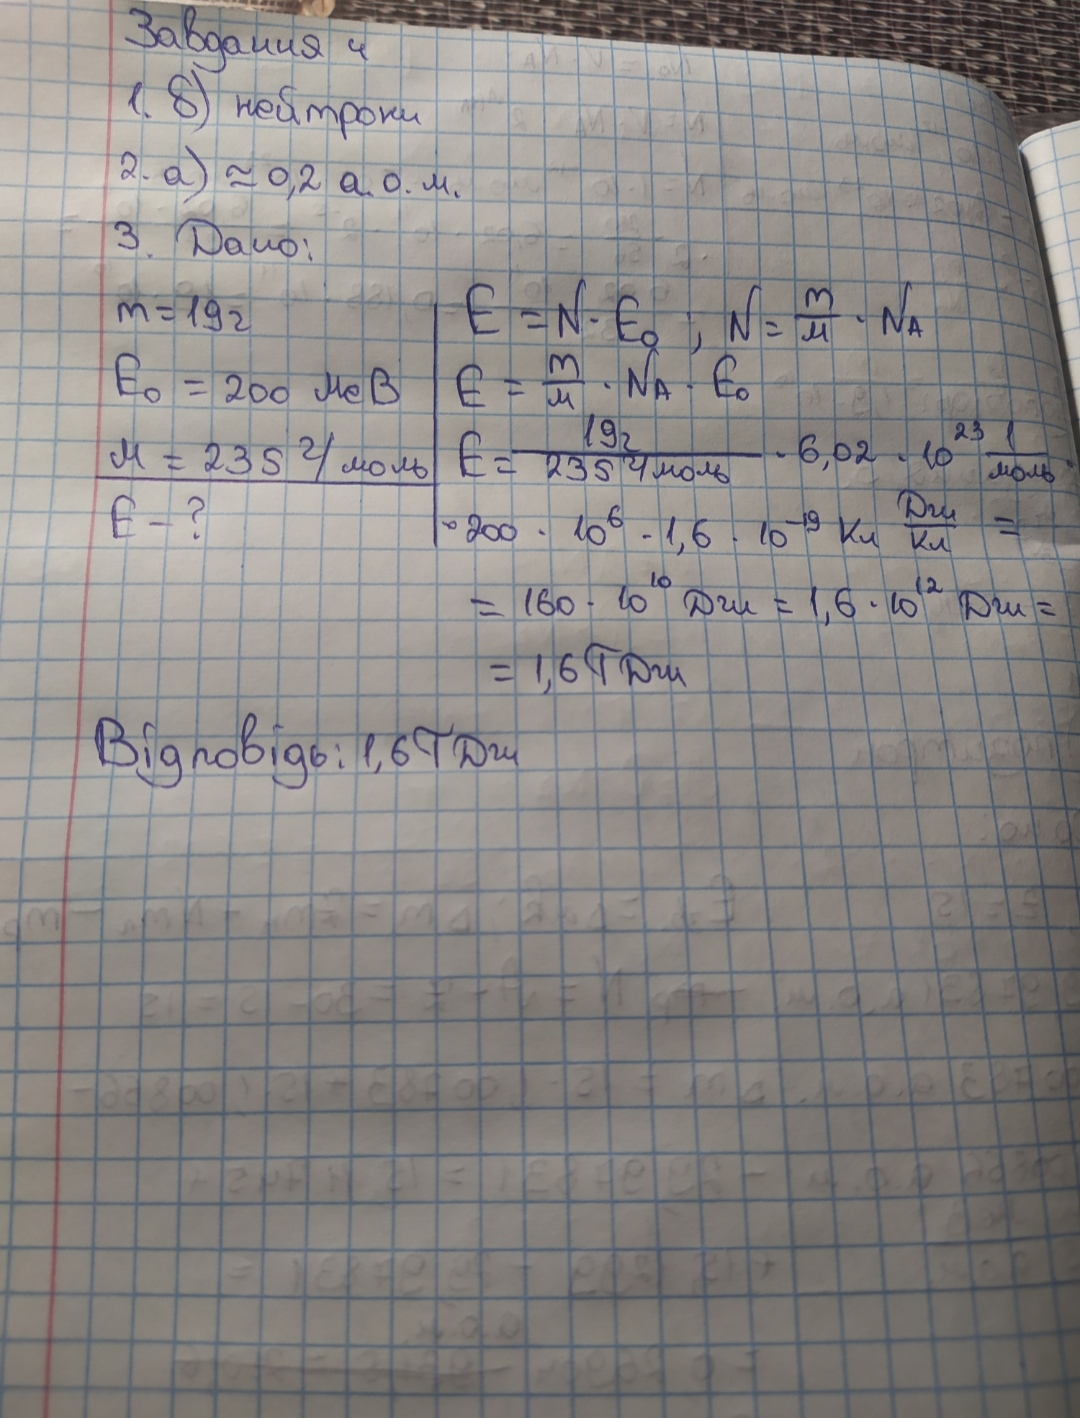 Завдання 4
1. б) нейтрони
2. а) ≈ 0,2 а.о.м.
3. Дано:
m = 19г
E₀ = 200 МеВ
M = 235 г/моль
E - ?
E = N · E₀ ; N = m/M · Nᴀ
E = m/M · Nᴀ · E₀
E = 19г / 235 г/моль · 6,02 · 10²³ 1/моль ·
· 200 · 10⁶ · 1,6 · 10⁻¹⁹ Кл Дж/Кл =
= 160 · 10¹⁰ Дж = 1,6 · 10¹² Дж =
= 1,6 ТДж
Відповідь: 1,6 ТДж